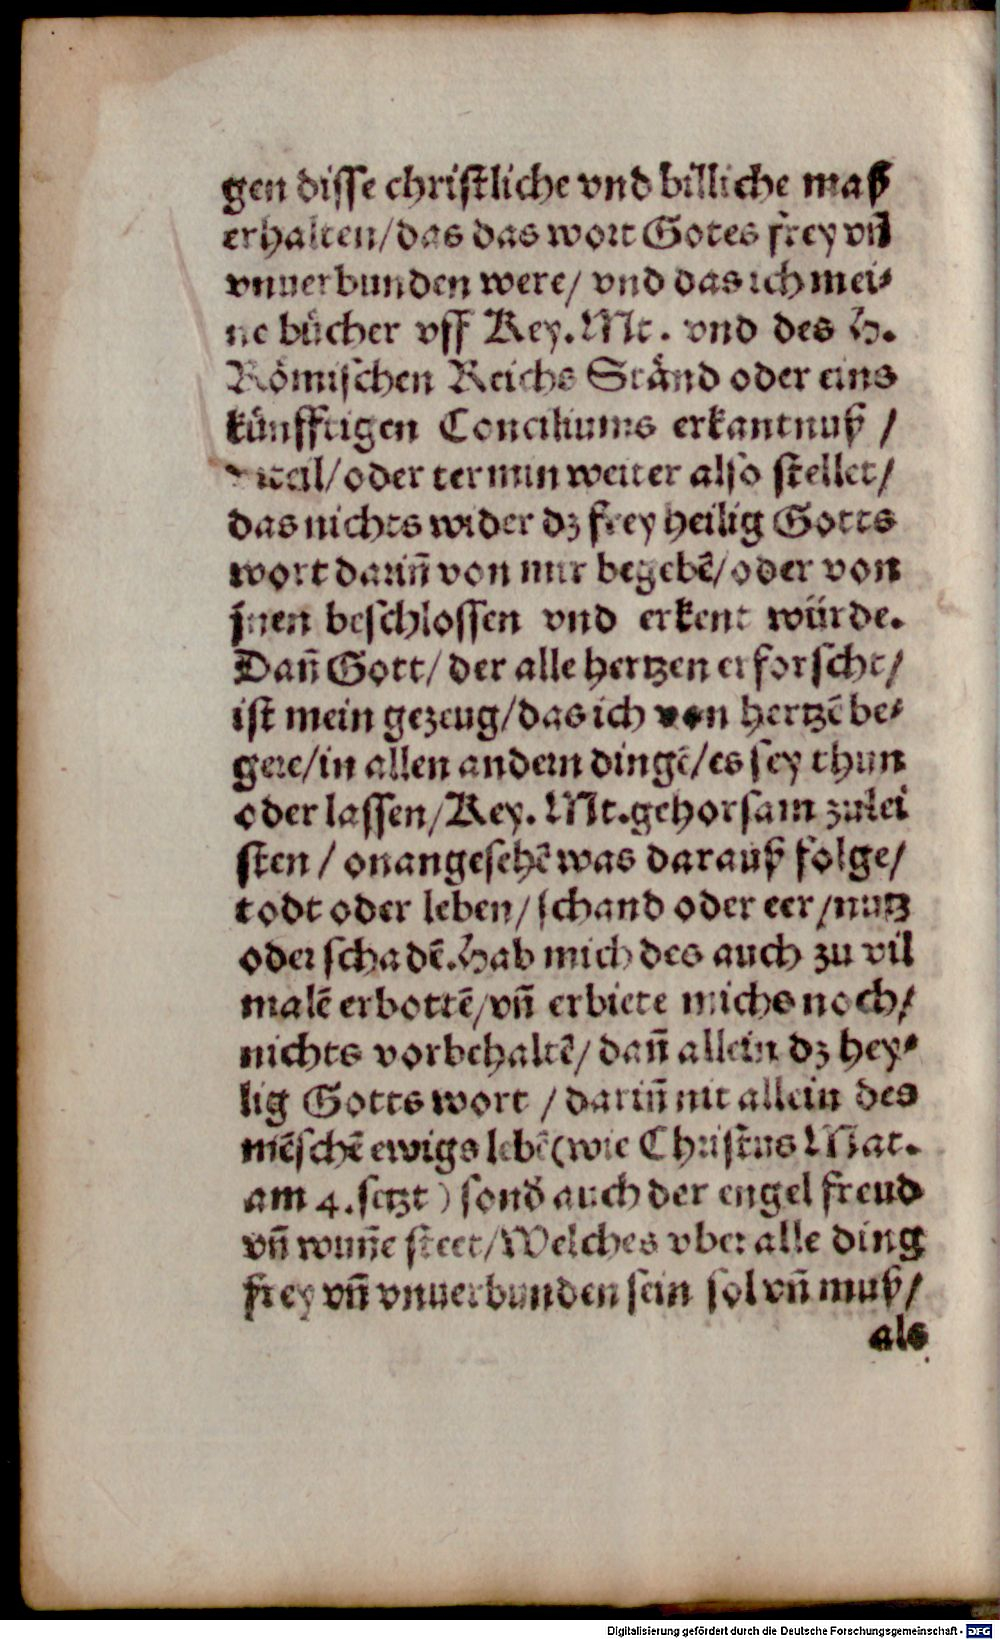 gen disse christliche vnd billiche maß
erhalten/das das wort Gotes frey vñ
vnuerbunden were/ vnd das ich mei⸗
ne bücher vff Key. Mt. vnd des H.
Römischen Reichs Ständ oder eins
künfftigen Conciliums erkantnuß /
vrteil/oder termin weiter also stellet/
das nichts wider dz frey heilig Gotts
wort dariñ von mir begebē/oder von
jnen beschlossen vnd erkent würde.
Dañ Gott/ der alle hertzen erforscht/
ist mein gezeug/das ich von hertzē be⸗
gere/in allen andern dingē/es sey thun
oder lassen/Key. Mt.gehorsam zulei
sten / onangesehē was darauß folge/
todt oder leben/ schand oder eer/nutz
oder schadē.Hab mich des auch zu vil
malē erbottē/vñ erbiete michs noch/
nichts vorbehaltē/ dañ allein dz hey⸗
lig Gotts wort / dariñ nit allein des
mēschē ewigs lebē(wie Christus Mat.
am 4.setzt) sond̓ auch der engel freud
vñ wuñe steet/Welches vber alle ding
frey vñ vnuerbunden sein sol vñ muß/
als
Digitalisierung gefördert durch die Deutsche Forschungsgemeinschaft - DFG